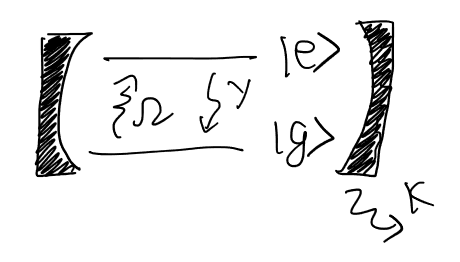 |e>
Ω γ
|g>
κ